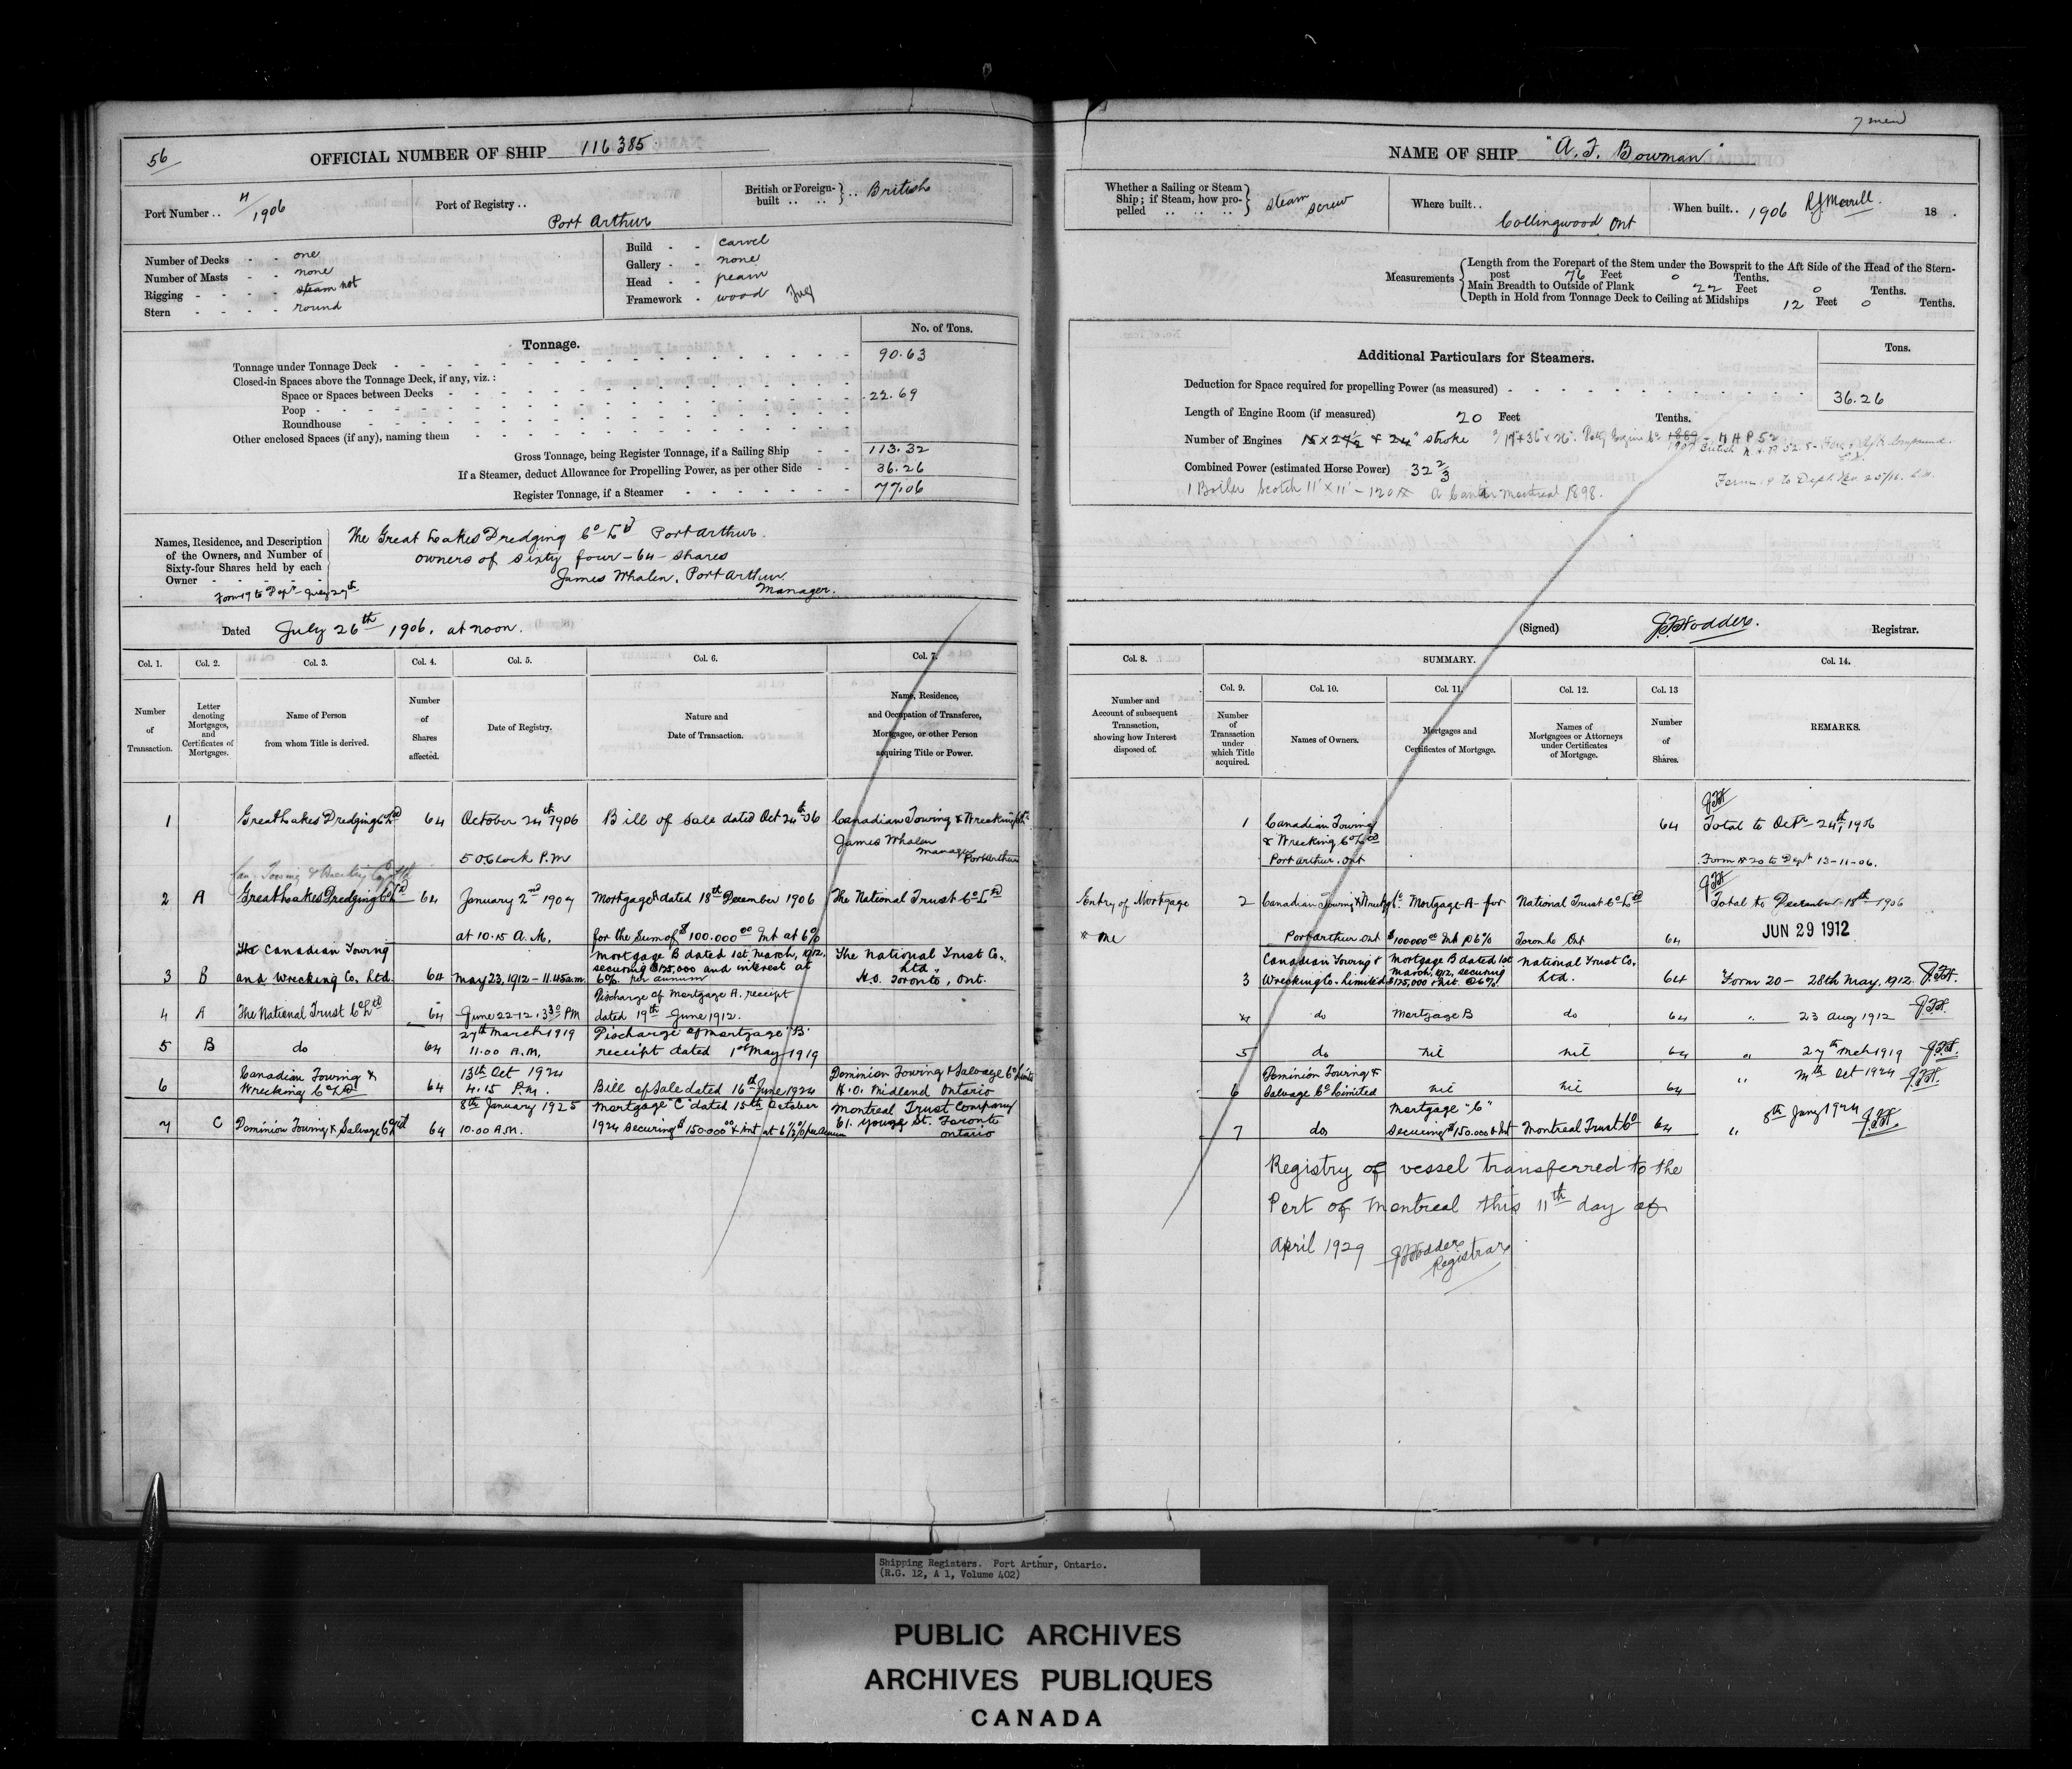 7 men
56
OFFICIAL NUMBER OF SHIP 116385
Port Number .. 4/1906
Port of Registry .. Port Arthur
British or Foreign-built .. .. British
Number of Decks - - one
Number of Masts - - none
Rigging - - - - steam not
Stern - - - - round
Build - - carvel
Gallery - - none
Head - -
Framework - wood Tug
Tonnage.
No. of Tons.
Tonnage under Tonnage Deck 90.63
Closed-in Spaces above the Tonnage Deck, if any, viz.:
Space or Spaces between Decks 22.69
Poop
Roundhouse
Other enclosed Spaces (if any), naming them
Gross Tonnage, being Register Tonnage, if a Sailing Ship 113.32
If a Steamer, deduct Allowance for Propelling Power, as per other Side 36.26
Register Tonnage, if a Steamer 77.06
Names, Residence, and Description
of the Owners, and Number of
Sixty-four Shares held by each
Owner
The Great Lakes Dredging Co Ltd Port Arthur.
owners of sixty four - 64 - shares
James Whalen, Port Arthur
Manager.
Form 19 to Dept July 27th
Dated July 26th 1906. at noon.
Col. 1. Col. 2. Col. 3. Col. 4. Col. 5. Col. 6. Col. 7.
Number of Transaction.
Letter denoting Mortgages, and Certificates of Mortgages.
Name of Person from whom Title is derived.
Number of Shares affected.
Date of Registry.
Nature and Date of Transaction.
Name, Residence, and Occupation of Transferee, Mortgagee, or other Person acquiring Title or Power.
1 Great Lakes Dredging Co Ltd 64 October 24th 1906 Bill of Sale dated Oct 24th 06 Canadian Towing & Wrecking Co
5 OClock P.M James Whalen Manager Port Arthur
Can. Towing & Wrecking Co
2 A Great Lakes Dredging Co Ltd 64 January 2nd 1907 Mortgage A dated 18th December 1906 The National Trust Co Ltd
at 10.15 A.M. for the Sum of $100.000 00 Int at 6%
3 B The Canadian Towing and Wrecking Co. Ltd. 64 May 23, 1912 - 11.45 a.m. Mortgage B dated 1st March, 1912. securing $125,000 and interest at 6% per annum The National Trust Co., Ltd. H.O. Toronto, Ont.
4 A The National Trust Co Ltd 64 June 22-12. 3 30 PM Discharge of Mortgage A. receipt dated 19th June 1912.
5 B do 64 27th March 1919 11.00 A.M. Discharge of Mortgage "B" receipt dated 1st May 1919
6 Canadian Towing & Wrecking Co Ltd 64 13th Oct 1924 4.15 P.M. Bill of Sale dated 16th June 1924 Dominion Towing & Salvage Co Limited H.O. Midland Ontario
7 C Dominion Towing & Salvage Co Ltd 64 8th January 1925 10.00 A.M. Mortgage "C" dated 15th October 1924 securing $150.000 00 & Int at 6½% per Annum Montreal Trust Company 61. Yonge St. Toronto Ontario
NAME OF SHIP "A. F. Bowman"
Whether a Sailing or Steam Ship; if Steam, how propelled .. .. .. .. Steam Screw
Where built .. Collingwood Ont
When built .. 1906 R J Morrill. 18 .
Measurements
Length from the Forepart of the Stem under the Bowsprit to the Aft Side of the Head of the Stern-
post 76 Feet 0 Tenths.
Main Breadth to Outside of Plank 22 Feet 0 Tenths.
Depth in Hold from Tonnage Deck to Ceiling at Midships 12 Feet 0 Tenths.
Additional Particulars for Steamers.
Tons.
Deduction for Space required for propelling Power (as measured) 36.26
Length of Engine Room (if measured) 20 Feet Tenths.
Number of Engines 15 x 27½ & 24" stroke
Combined Power (estimated Horse Power) 32 2/3
1 Boiler Scotch 11' x 11' - 120 Montreal 1898.
Form 19 to Dept.
(Signed) J.F. Hodder. Registrar.
Col. 8. SUMMARY. Col. 14.
Col. 9. Col. 10. Col. 11. Col. 12. Col. 13
Number and Account of subsequent Transaction, showing how Interest disposed of.
Number of Transaction under which Title acquired.
Names of Owners.
Mortgages and Certificates of Mortgage.
Names of Mortgagees or Attorneys under Certificates of Mortgage.
Number of Shares.
REMARKS.
1 Canadian Towing & Wrecking Co Ltd Port Arthur. Ont 64 Total to Octr 24th, 1906
Form No 20 to Dept 13-11-06.
Entry of Mortgage 2 Canadian Towing & Wrecking Co. Port Arthur Ont Mortgage A for $100000 00 Int @ 6% National Trust Co Ltd Toronto Ont 64 Total to December 18th 1906
JUN 29 1912
3 Canadian Towing & Wrecking Co. Limited Mortgage B dated 1st March, 1912, securing $125,000 & int. @ 6% National Trust Co. Ltd. 64 Form 20 - 28th May, 1912.
4 do Mortgage B do 64 " 23 Aug 1912
5 do nil nil 64 " 27th Mch 1919
6 Dominion Towing & Salvage Co Limited nil nil 64 " Oct 1924
7 do Mortgage "C" Securing $150.000 & Int Montreal Trust Co 64 " 8th Jany 1924
Registry of vessel transferred to the
Port of Montreal this 11th day of
April 1929 J F Hodder
Registrar
Shipping Registers. Port Arthur, Ontario.
(R.G. 12, A 1, Volume 402)
PUBLIC ARCHIVES
ARCHIVES PUBLIQUES
CANADA